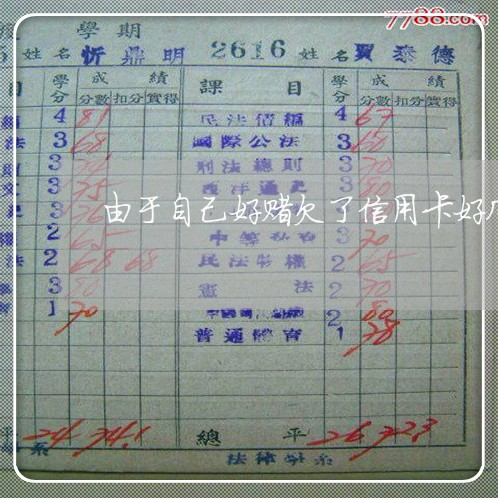 7788.com
度 學期
5 姓名 忻鼎明 2616 姓名 賈泰德
目 學分 成績 課目 學分 成績
分數 扣分 實得 分數 扣分 實得
4 81 民法債編 4 67
法 3 68 國際公法 3 60
則 3 刑法總則 3 70
文 3 75 西洋通史 3 80
史 3 76
由于自己好赌欠了信用卡好
權 2 65 3 70
法 2 68 68 民法物權 2 65
3 80 憲法 2 70
育 1 70 2 80
普通體育 1 78
平 24 74.1 總平 26 72.3
系 法律學系